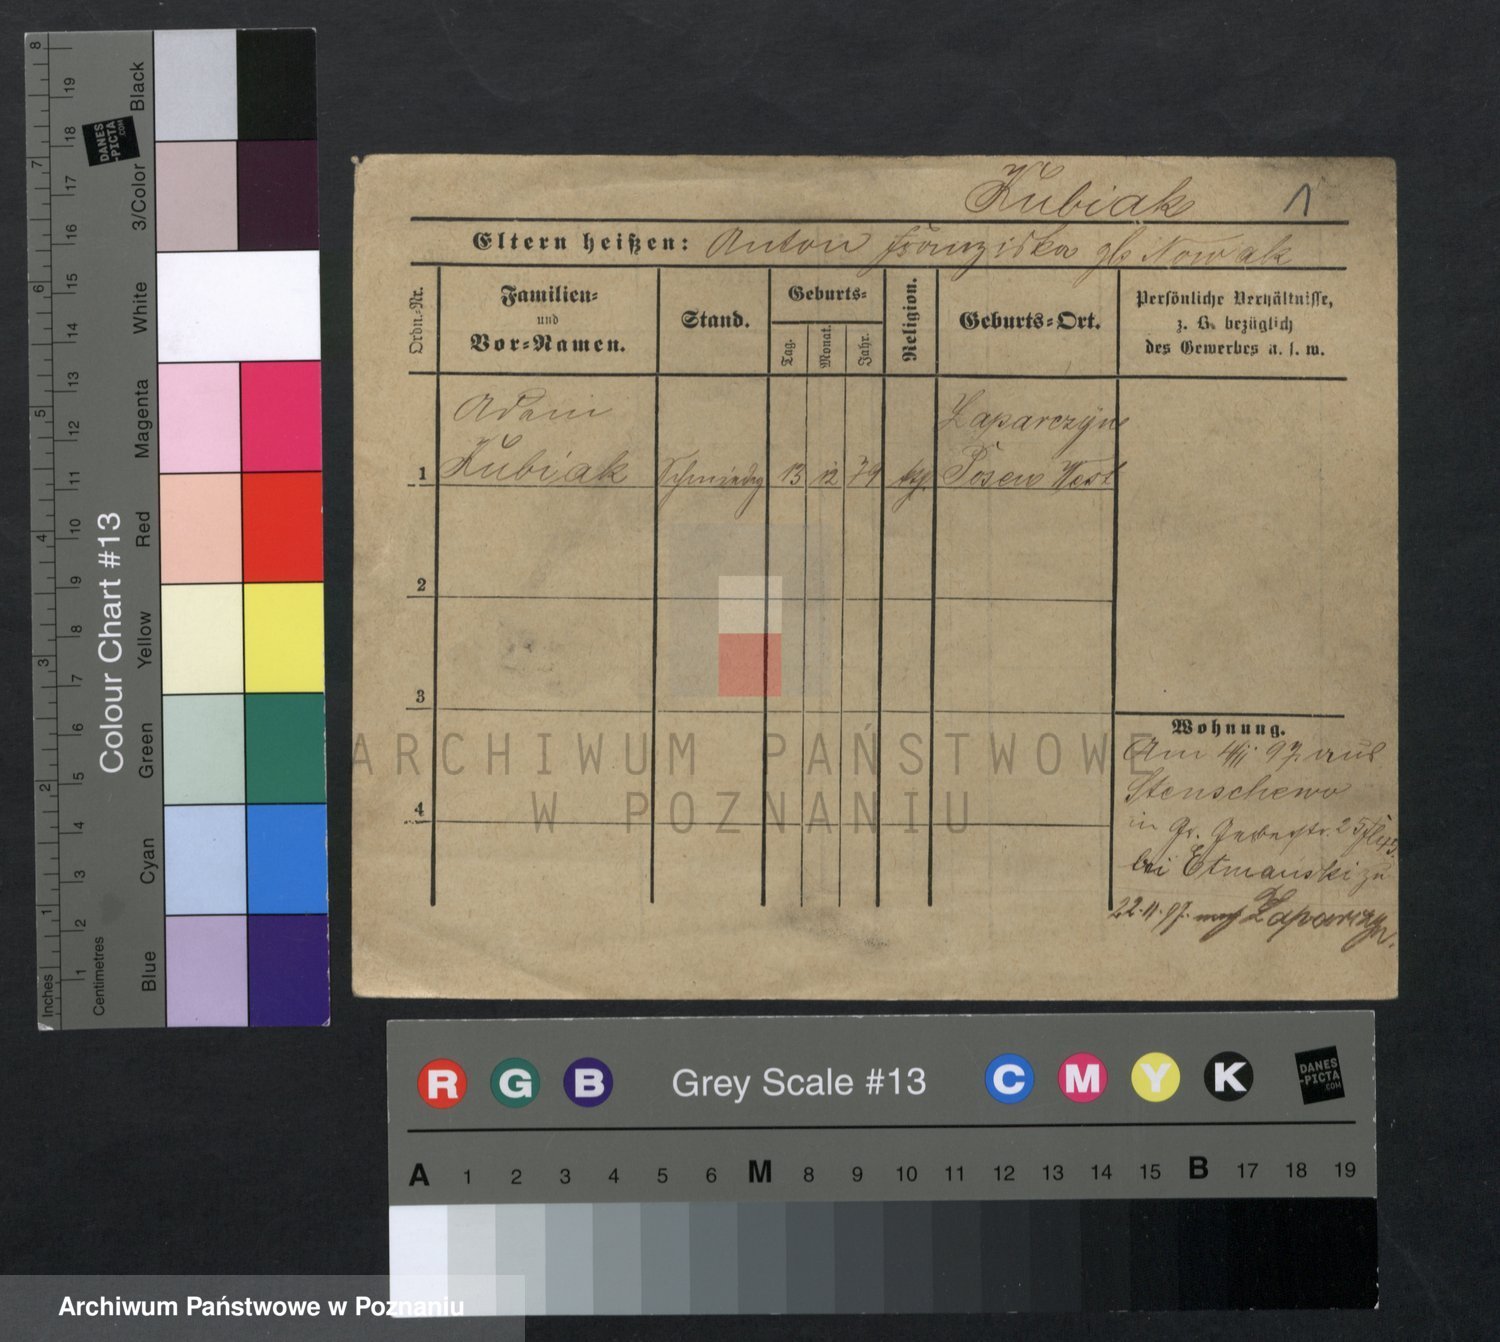 Kubiak 1
Eltern heißen: Anton Franziska gb Nowak
Ordn.-Nr.
Familien-
und
Vor-Namen.
Stand.
Geburts-
Tag.
Monat.
Jahr.
Religion.
Geburts-Ort.
Persönliche Verhältnisse,
z. B. bezüglich
des Gewerbes u. s. w.
Adam Zaparczyn
1 Kubiak 13 12 79 Posen West
2
3
4
Wohnung.
Am 97. aus
Stenschewo
in Gr. 25
bei Etmanski zu
22.11.97. nach Zaparczyn.
ARCHIWUM PAŃSTWOWE
W POZNANIU
8 7 6 5 4 3 2 1 Inches
19 18 17 16 15 14 13 12 11 10 9 8 7 6 5 4 3 2 1 Centimetres
DANES
-PICTA
.COM
Colour Chart #13
Black
3/Color
White
Magenta
Red
Yellow
Green
Cyan
Blue
R G B Grey Scale #13 C M Y K
DANES
-PICTA
.COM
A 1 2 3 4 5 6 M 8 9 10 11 12 13 14 15 B 17 18 19
Archiwum Państwowe w Poznaniu